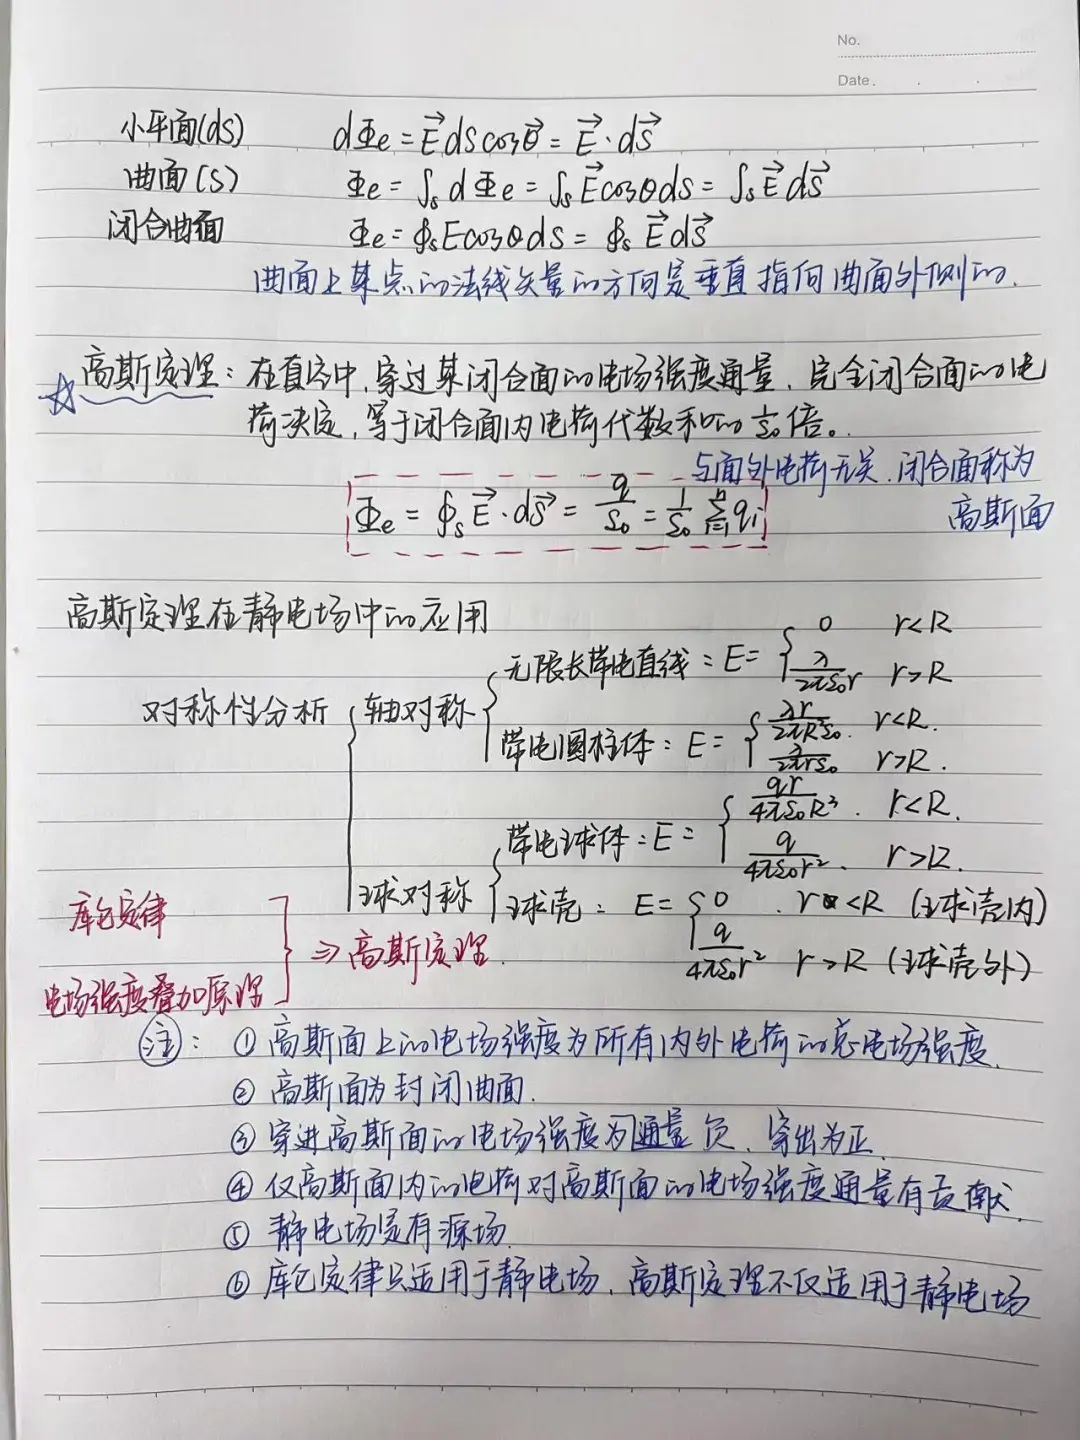 No.
Date.
小平面(ds) dΦe = E⃗ ds cosθ⃗ = E⃗·ds⃗
曲面(S) Φe = ∫s dΦe = ∫s E⃗cosθds = ∫s E⃗ds⃗
闭合曲面 Φe = ∮s Ecosθds = ∮s E⃗ds⃗
曲面上某点的法线矢量的方向是垂直指向曲面外侧的.
☆高斯定理: 在真空中,穿过某闭合面的电场强度通量,完全闭合面的电
荷决定,等于闭合面内电荷代数和的 1/ε₀ 倍。
与面外电荷无关.闭合面称为
高斯面
Φe = ∮s E⃗·ds⃗ = q/ε₀ = 1/ε₀ ∑ⁿᵢ₌₁ qi
高斯定理在静电场中的应用
对称性分析 { 轴对称 { 无限长带电直线: E= { 0 r<R
λ/2πε₀r r>R
带电圆柱体: E= { λr/2πR²ε₀. r<R.
λ/2πrε₀ r>R.
球对称 { 带电球体: E= { qr/4πε₀R³. r<R.
q/4πε₀r². r>R.
球壳: E= { 0 . r<R (球壳内)
q/4πε₀r² r>R (球壳外)
库仑定律
电场强度叠加原理 } ⇒ 高斯定理.
注: ① 高斯面上的电场强度为所有内外电荷的总电场强度.
② 高斯面为封闭曲面.
③ 穿进高斯面的电场强度为通量负、穿出为正.
④ 仅高斯面内的电荷对高斯面的电场强度通量有贡献.
⑤ 静电场是有源场.
⑥ 库仑定律只适用于静电场、高斯定理不仅适用于静电场